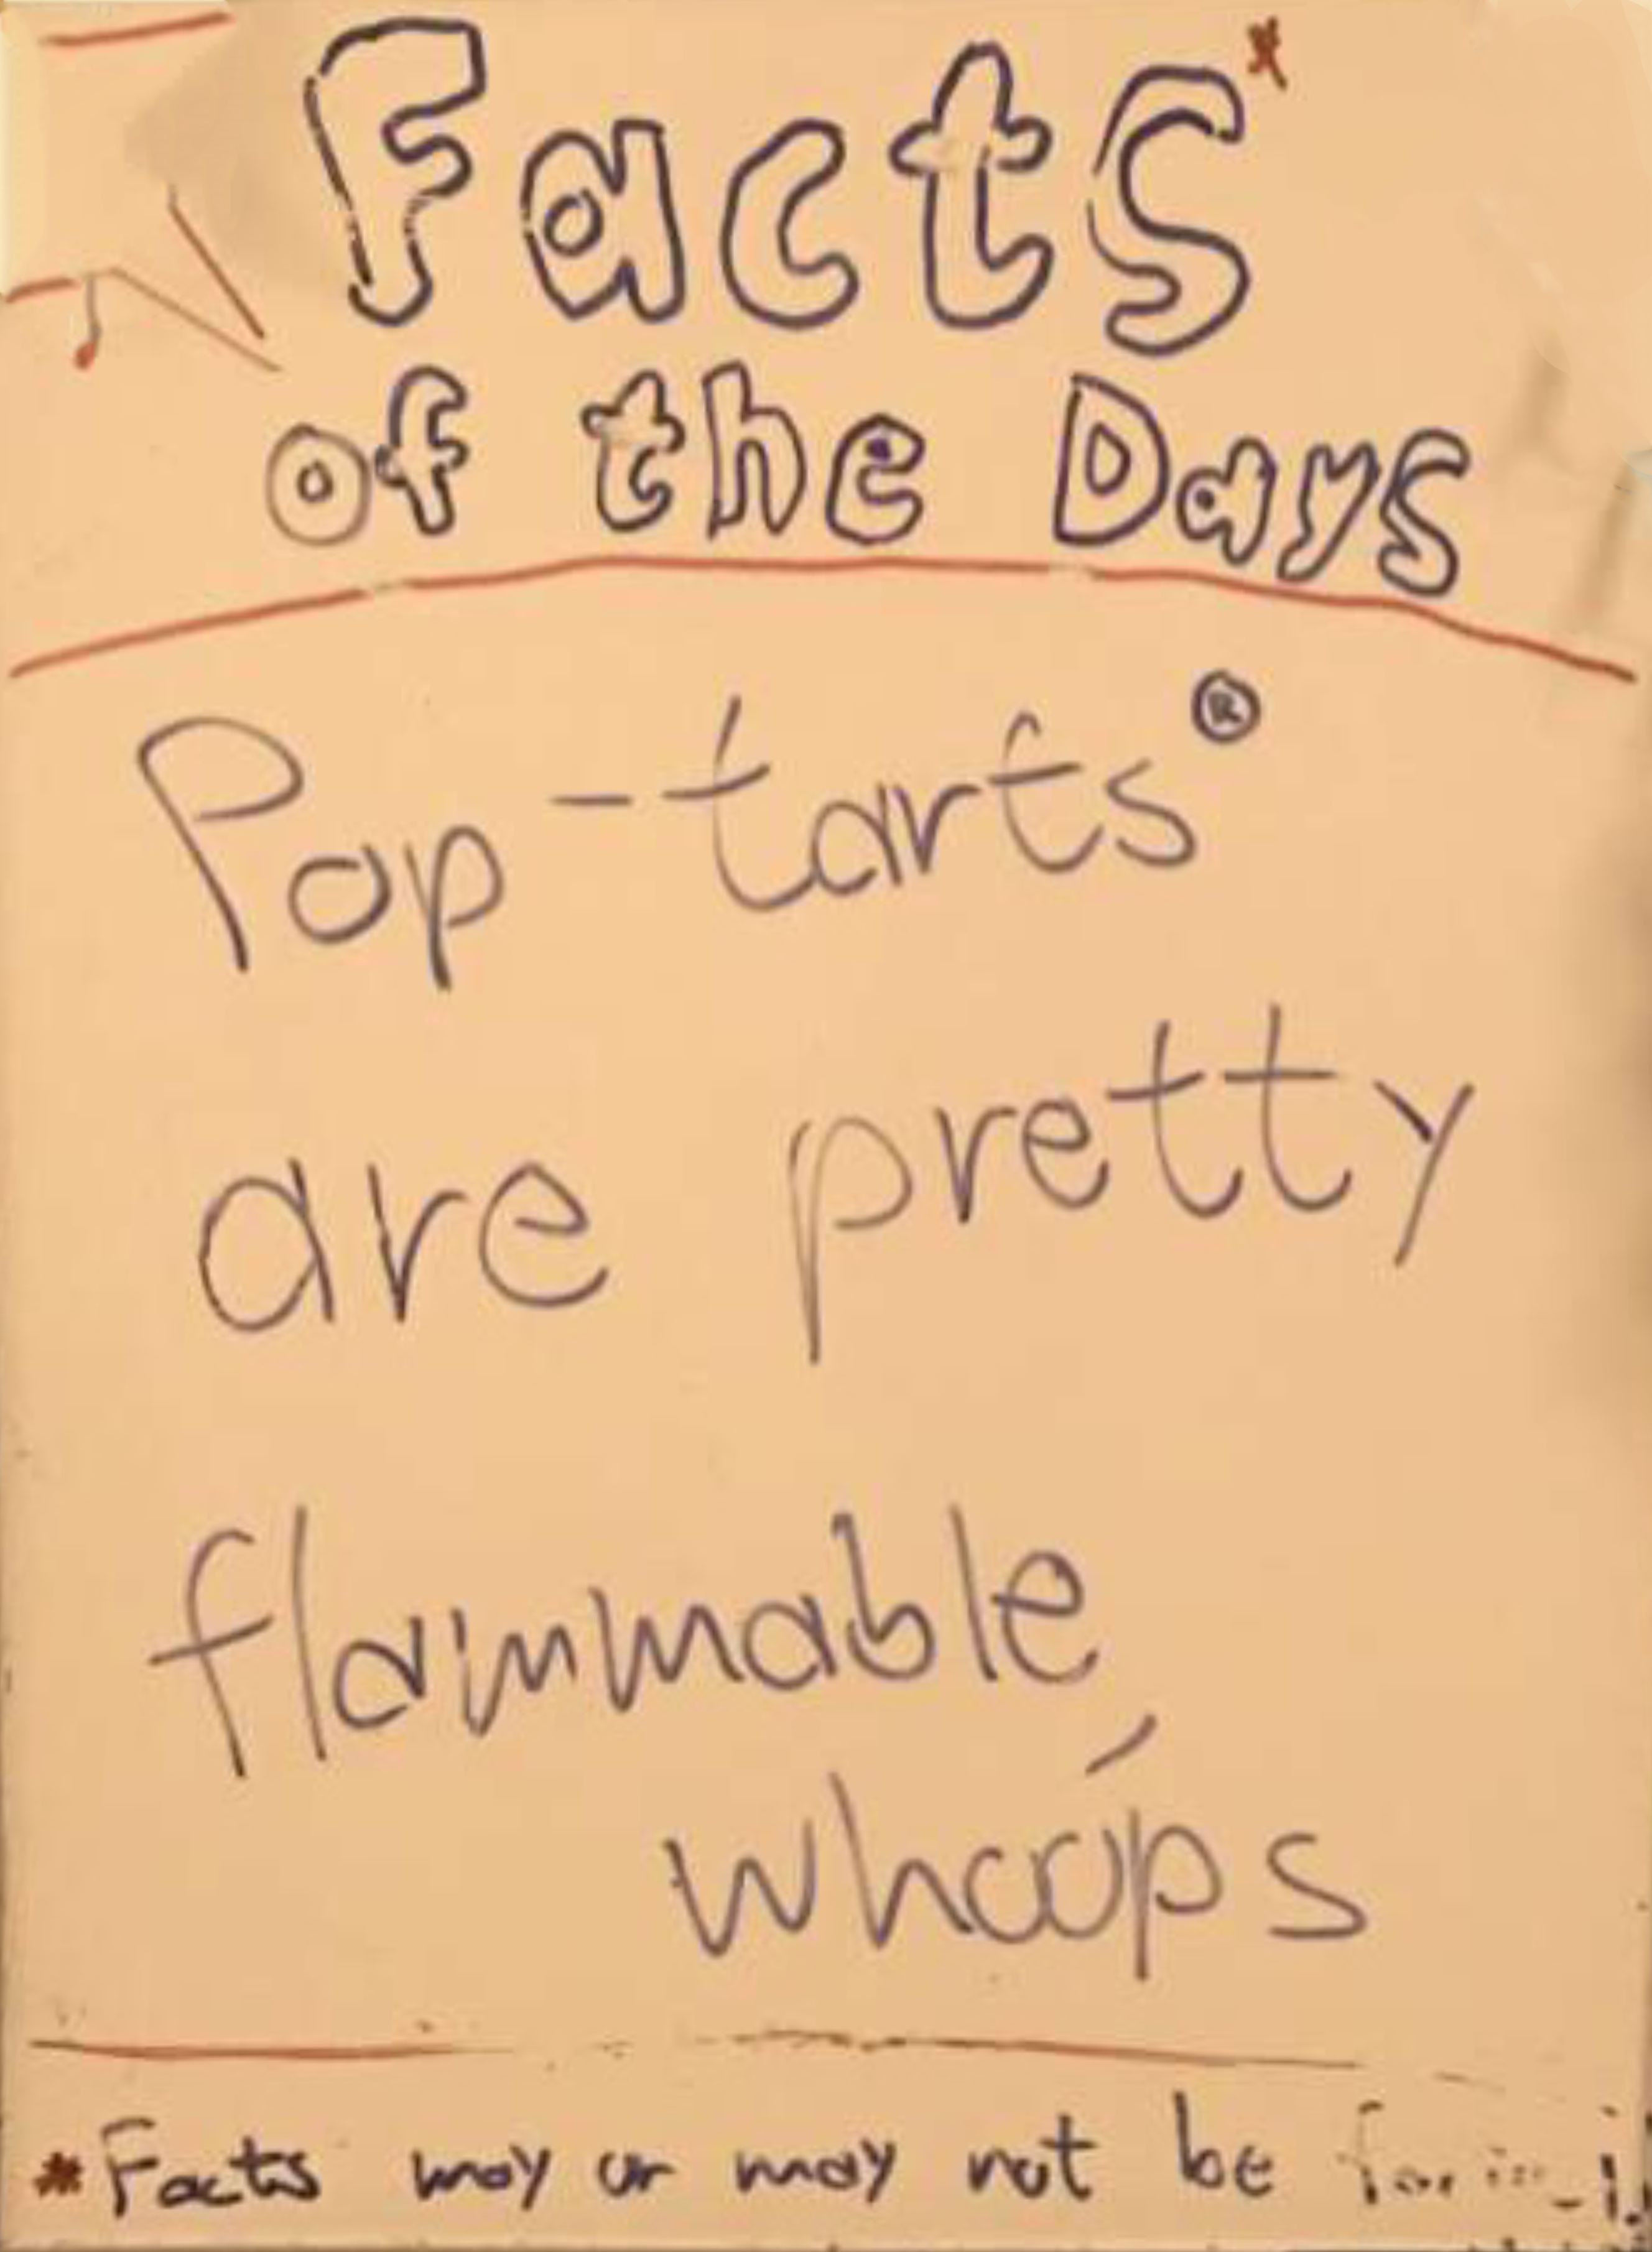 Facts*
of the Days
Pop-tarts®
are pretty
flammable,
whoops
*Facts may or may not be